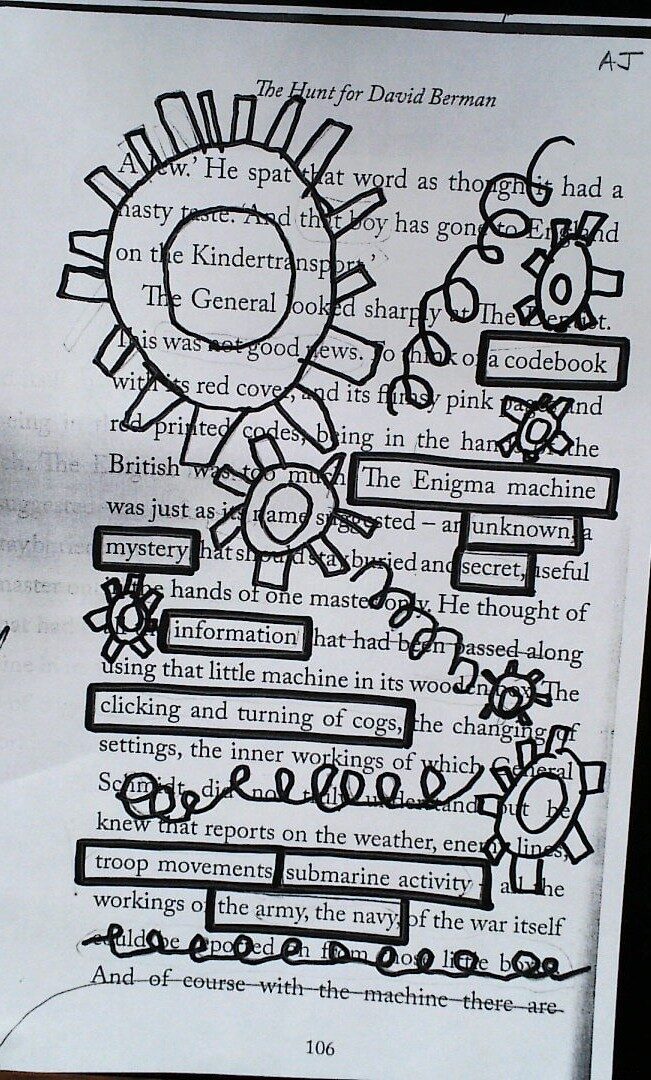 AJ
The Hunt for David Berman
A Jew.' He spat that word as though it had a
nasty taste. 'And that boy has gone to England
on the Kindertransport.'
The General looked sharply at The
This was not good news. To think of a codebook
with its red cover, and its flimsy pink pages and
red printed codes, being in the hands of the
British was too much. The Enigma machine
was just as its name suggested – an unknown, a
mystery that should stay buried and secret, useful
in the hands of one master only. He thought of
information that had been passed along
using that little machine in its wooden box. The
clicking and turning of cogs, the changing of
settings, the inner workings of which General
Schmidt did not truly understand, but he
knew that reports on the weather, enemy lines,
troop movements, submarine activity – all the
workings of the army, the navy, of the war itself
could be reported on from those little boxes.
And of course with the machine there are
106